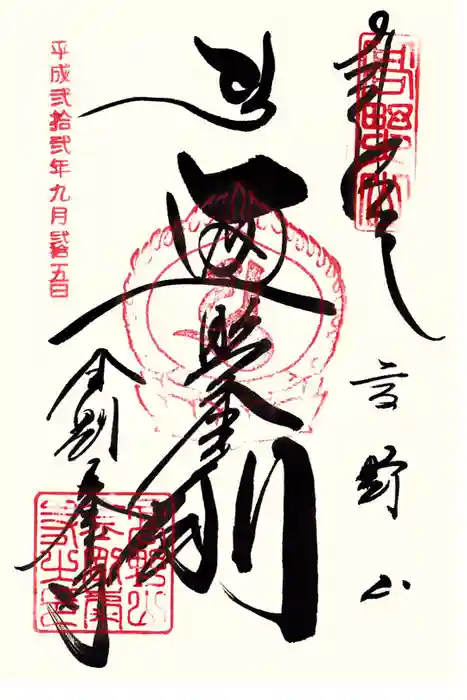 奉拝
高野山
高野山
遍照金剛
金剛峯寺
平成弐拾弐年九月弐拾五日